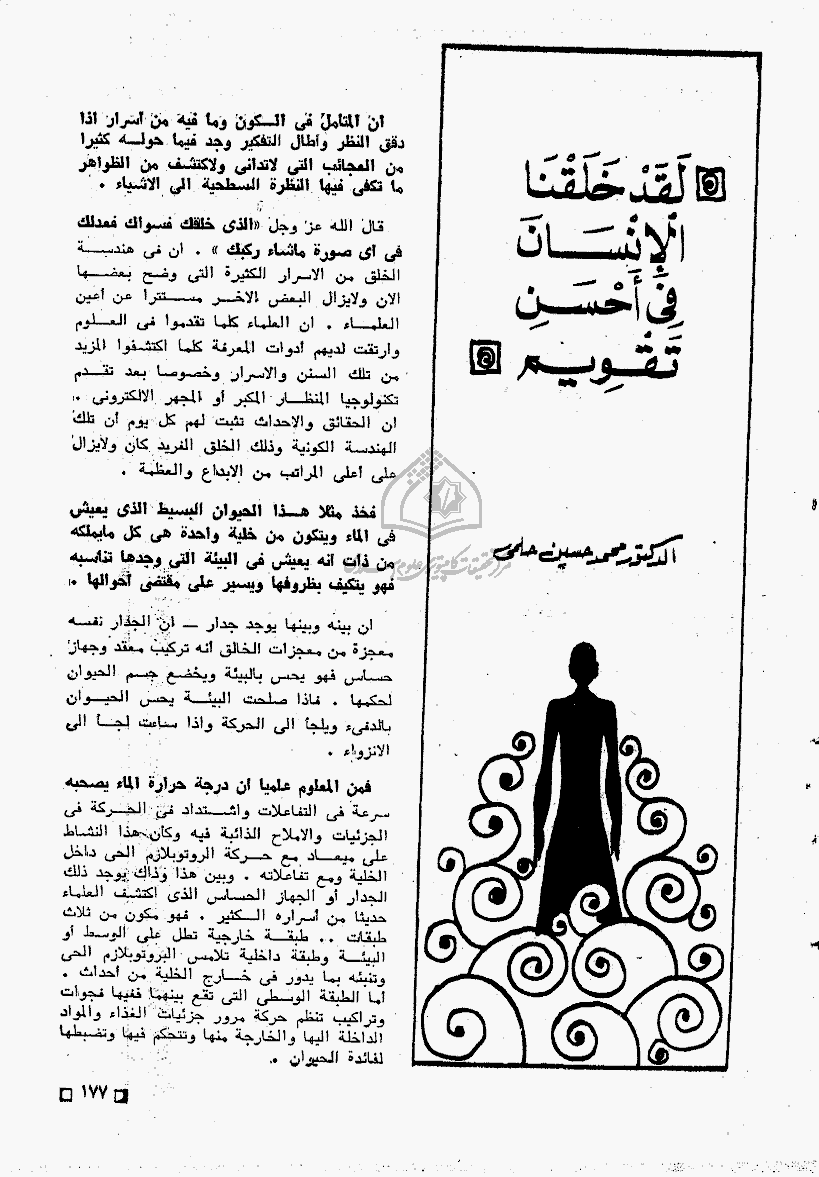 لَقَدْ خَلَقْنَا
الْإِنْسَانَ
فِي أَحْسَنِ
تَقْوِيم
الدكتور محمد حسين حلمى
ان المتأمل فى الكون وما فيه من أسرار اذا
دقق النظر وأطال التفكير وجد فيما حوله كثيرا
من العجائب التى لاتدانى ولاكتشف من الظواهر
ما تكفى فيها النظرة السطحية الى الاشياء .
قال الله عز وجل «الذى خلقك فسواك فعدلك
فى أى صورة ماشاء ركبك » . ان فى هندسة
الخلق من الاسرار الكثيرة التى وضح بعضها
الان ولايزال البعض الاخر مستترا عن أعين
العلماء . ان العلماء كلما تقدموا فى العلوم
وارتقت لديهم أدوات المعرفة كلما اكتشفوا المزيد
من تلك السنن والاسرار وخصوصا بعد تقدم
تكنولوجيا المنظار المكبر أو المجهر الالكترونى .
ان الحقائق والاحداث تثبت لهم كل يوم أن تلك
الهندسة الكونية وذلك الخلق الفريد كان ولايزال
على أعلى المراتب من الابداع والعظمة .
فخذ مثلا هذا الحيوان البسيط الذى يعيش
فى الماء ويتكون من خلية واحدة هى كل مايملكه
من ذات انه يعيش فى البيئة التى وجدها تناسبه
فهو يتكيف بظروفها ويسير على مقتضى أحوالها .
ان بينه وبينها يوجد جدار — ان الجدار نفسه
معجزة من معجزات الخالق أنه تركيب معقد وجهاز
حساس فهو يحس بالبيئة ويخضع جسم الحيوان
لحكمها . فاذا صلحت البيئة يحس الحيوان
بالدفىء ويلجأ الى الحركة واذا ساءت لجأ الى
الانزواء .
فمن المعلوم علميا أن درجة حرارة الماء يصحبه
سرعة فى التفاعلات واشتداد فى الحركة فى
الجزئيات والاملاح الذائبة فيه وكأن هذا النشاط
على ميعاد مع حركة الروتوبلازم الحى داخل
الخلية ومع تفاعلاته . وبين هذا وذاك يوجد ذلك
الجدار أو الجهاز الحساس الذى اكتشف العلماء
حديثا من أسراره الكثير . فهو مكون من ثلاث
طبقات .. طبقة خارجية تطل على الوسط أو
البيئة وطبقة داخلية تلامس البروتوبلازم الحى
وتنبئه بما يدور فى خارج الخلية من أحداث .
أما الطبقة الوسطى التى تقع بينهما ففيها فجوات
وتراكيب تنظم حركة مرور جزئيات الغذاء والمواد
الداخلة اليها والخارجة منها وتتحكم فيها وتضبطها
لفائدة الحيوان .
١٧٧